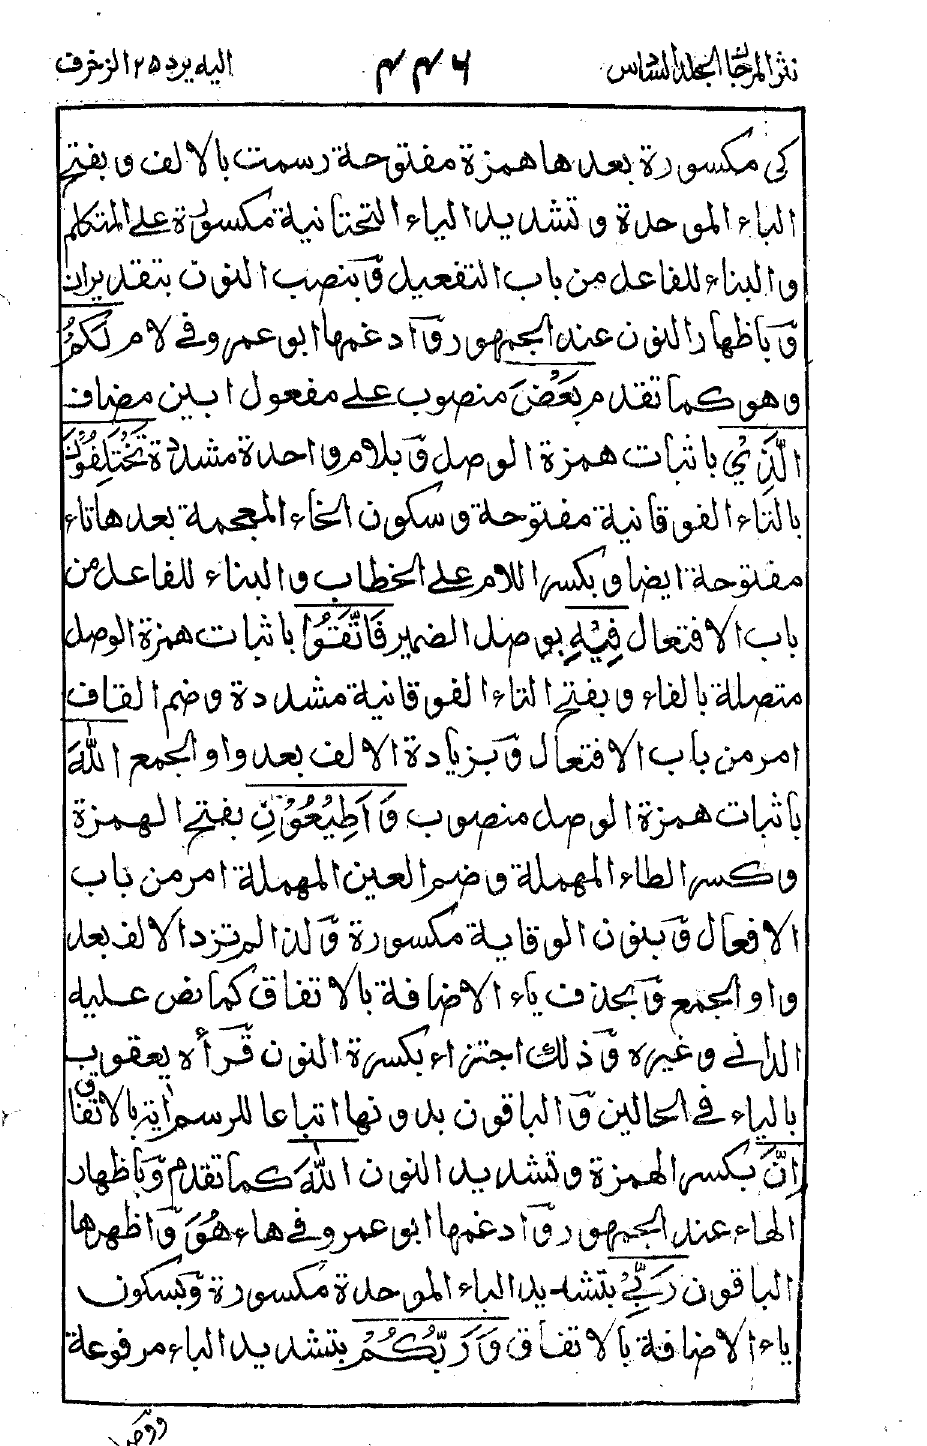 نثر المرجان المجلد السادس ٤٤٦ اليه يرد ٢٥ الزخرف
كى مكسورة بعدها همزة مفتوحة رسمت بالالف و بفتح
الباء الموحدة و تشديد الياء التحتانية مكسورة على المتكلم
و البناء للفاعل من باب التفعيل وَ بنصب النون بتقدير ان
وَ باظهار النون عند الجمهور وَ ادغمها ابو عمرو فى لام لَكُمْ
و هو كما تقدم بَعْضَ منصوب على مفعول ابين مضاف
الَّذِيْ باثبات همزة الوصل وَ بلام واحدة مشددة تَخْتَلِفُوْنَ
بالتاء الفوقانية مفتوحة و سكون الخاء المعجمة بعدها تاء
مفتوحة ايضا و بكسر اللام على الخطاب و البناء للفاعل من
باب الافتعال فِيْهِ بوصل الضمير فَاتَّقُوْا باثبات همزة الوصل
متصلة بالفاء و بفتح التاء الفوقانية مشددة و ضم القاف
امر من باب الافتعال وَ بزيادة الالف بعد واو الجمع اللّٰهَ
باثبات همزة الوصل منصوب وَ اَطِيْعُوْنِ بفتح الهمزة
و كسر الطاء المهملة و ضم العين المهملة امر من باب
الافعال وَ بنون الوقاية مكسورة وَ لذا لم تزد الالف بعد
واو الجمع وَ بحذف ياء الاضافة بالاتفاق كما نص عليه
الدانى و غيره وَ ذلك اجتزاء بكسرة النون قَرأه يعقوب
بالياء فى الحالين وَ الباقون بدونها اتباعا للرسم اٰية بالاتفاق
اِنَّ بكسر الهمزة و تشديد النون اللّٰهَ كما تقدم وَ باظهار
الهاء عند الجمهور وَ ادغمها ابو عمرو فى هاء هُوَ وَ اظهرها
الباقون رَبِّيْ بتشديد الباء الموحدة مكسورة وَ بسكون
ياء الاضافة بالاتفاق وَ رَبُّكُمْ بتشديد الباء مرفوعة